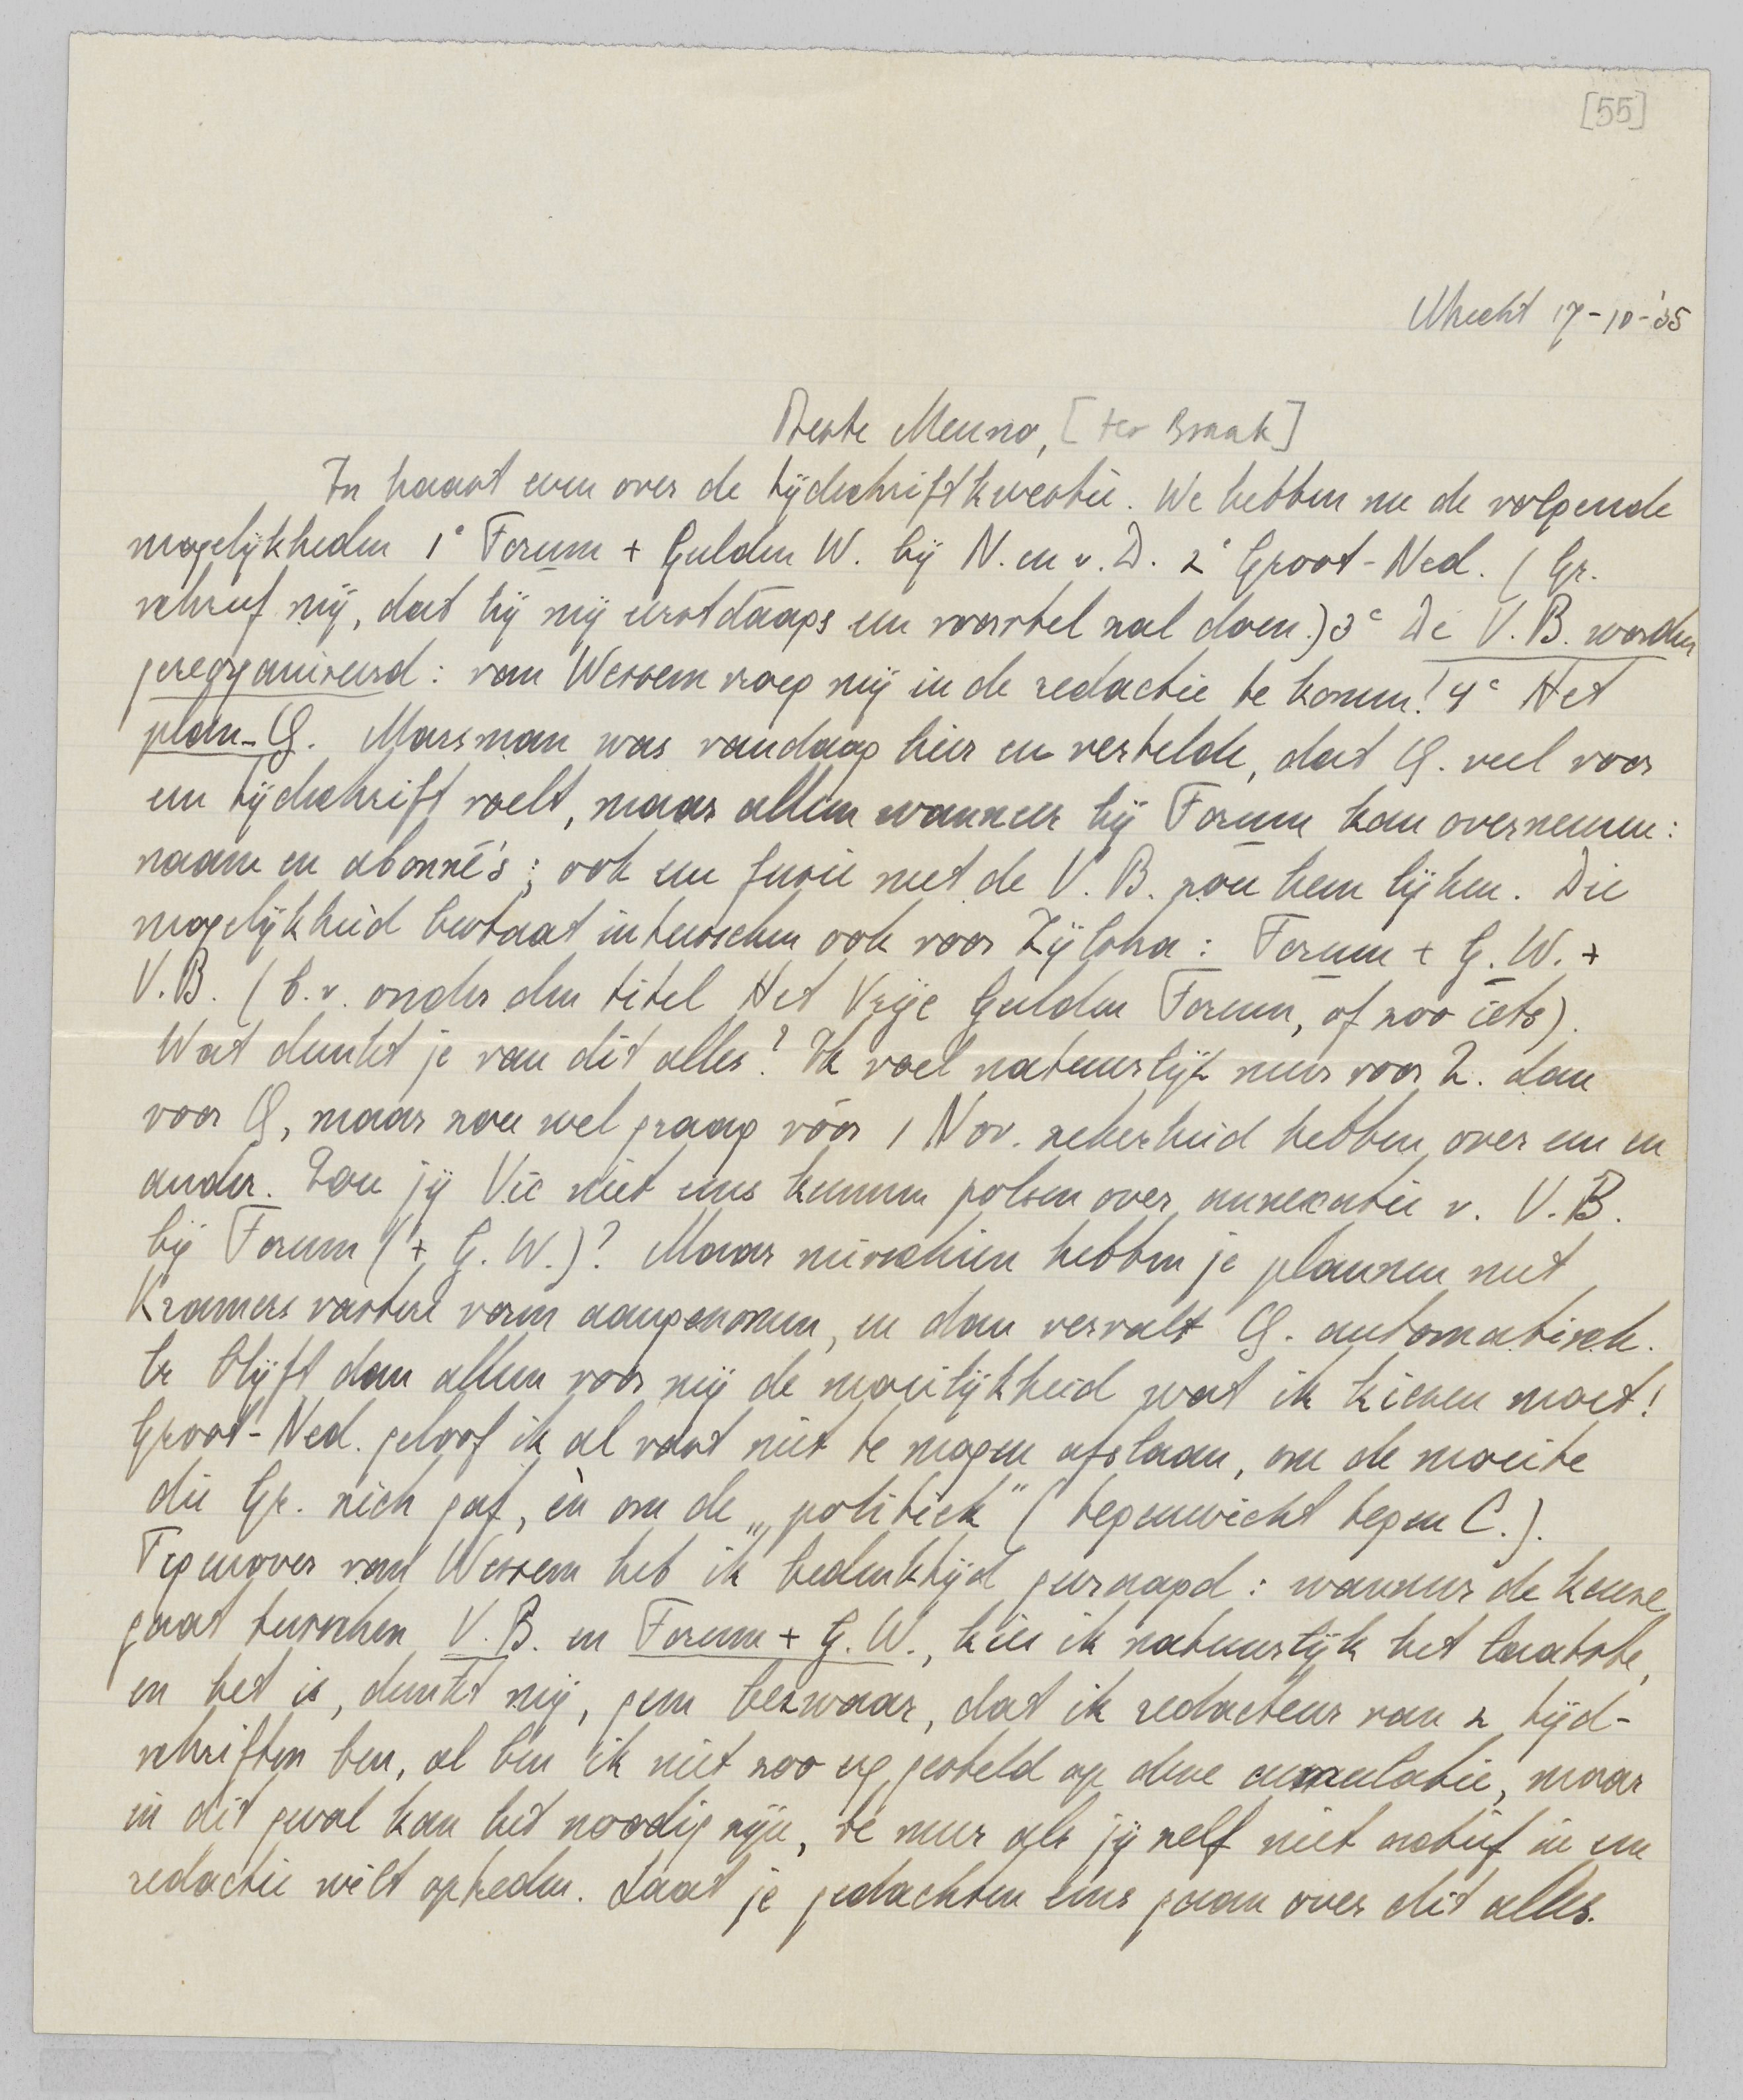 [55]
Utrecht 17-10-'35
Beste Menno, [ter Braak]
In haast even over de tijdschriftkwestie. We hebben nu de volgende
mogelijkheden 1° Forum + Gulden W. bij N. en v. D. 2° Groot-Ned. (Gr.
schreef mij, dat hij mij eerstdaags een voorstel zal doen.) 3e De V. B. worden
gereorganiseerd: van Wessem vroeg mij in de redactie te komen! 4e Het
plan-Q. Marsman was vandaag hier en vertelde, dat Q. veel voor
een tijdschrift voelt, maar alleen wanneer hij Forum kan overnemen:
naam en abonné's; ook een fusie met de V. B. zou hem lijken. Die
mogelijkheid bestaat intusschen ook voor Zijlstra: Forum + G. W. +
V. B. (b.v. onder den titel Het Vrije Gulden Forum, of zoo iets).
Wat dunkt je van dit alles? Ik voel natuurlijk meer voor Z. dan
voor Q, maar zou wel graag vóór 1 Nov. zekerheid hebben over een en
ander. Zou jij Vic niet eens kunnen polsen over annexatie v. V. B.
bij Forum (+ G. W.)? Maar misschien hebben je plannen met
Kramers vastere vorm aangenomen, en dan vervalt Q. automatisch.
Er blijft dan alleen voor mij de moeilijkheid wat ik kiezen moet!
Groot-Ned. geloof ik al vast niet te mogen afslaan, om de moeite
die Gr. zich gaf, èn om de „politiek" (tegenwicht tegen C.).
Tegenover van Wessem heb ik bedenktijd gevraagd: wanneer de keuze
gaat tusschen V. B. en Forum + G. W., kies ik natuurlijk het laatste,
en het is, dunkt mij, geen bezwaar, dat ik redacteur van 2 tijd-
schriften ben, al ben ik niet zoo erg gesteld op deze cumulatie, maar
in dit geval kan het noodig zijn, te meer als jij zelf niet actief in een
redactie wilt optreden. Laat je gedachten eens gaan over dit alles.